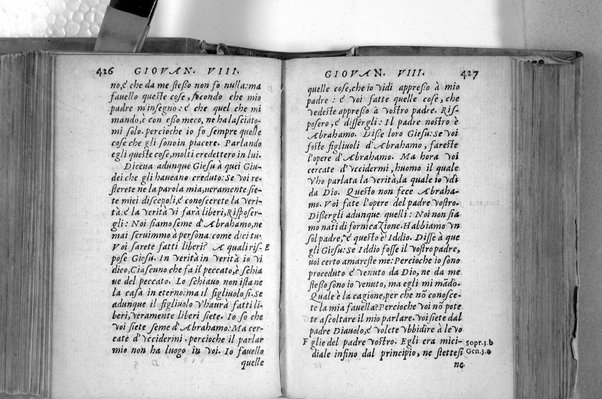 426 GIOVAN. VIII.
no, è che da me stesso non fo nulla: ma
fauello queste cose, secondo che mio
padre m'insegnò: è che quel che mi
mandò, è con esso meco, ne ha lasciato-
mi solo. percioche io fo sempre quelle
cose che gli sono in piacere. Parlando
egli queste cose, molti credettero in lui.
Diceua adunque Giesu à quei Giu-
dei che gli haueano creduto: Se voi re-
sterete ne la parola mia, veramente sie-
te miei discepoli, è conoscerete la veri-
tà: è la verità vi farà liberi, Risposer-
gli: Noi siamo seme d'Abrahamo, ne
mai seruimmo à persona: come dici tu:
Voi sarete fatti liberi? A quali ris- E
pose Giesu. In verità in verità io vi
dico, Ciascuno che fa il peccato, è schia
uo del peccato. Lo schiauo non istane
la casa in eterno: ma il figliuolo sì. Se
adunque il figliuolo v'haurà fatti li-
beri, veramente liberi siete. Io so che
voi siete seme d'Abrahamo: Ma cer-
cate d'vccidermi. percioche il parlar
mio non ha luogo in voi. Io fauello
quelle
GIOVAN. VIII. 427
quelle cose, che io vidi appresso à mio
padre: è voi fatte quelle cose, che
vedeste appresso à vostro padre. Ris-
posero, è dissergli: Il padre nostro è
Abrahamo. Disse loro Giesu: Se voi
foste figliuoli d'Abrahamo, fareste
l'opere d'Abrahamo. Ma hora voi
cercate d'vccidermi, huomo il quale
v'ho parlata la verità, la quale io vdì
da Dio. Questo non fece Abraha-
mo. Voi fate l'opere del padre vostro.
Dissergli adunque quelli: Noi non sia
mo nati di fornicazione. Habbiamo vn
sol padre, è questo è Iddio. Disse à que
gli Giesu: Se Iddio fosse il vostro padre,
voi certo amareste me: Percioche io sono
proceduto è venuto da Dio, ne da me
stesso sono io venuto, ma egli mi mãdò.
Quale è la cagione, per che nõ conosce-
te la mia fauella? Percioche voi nõ pote
te ascoltare il mio parlare. voi siete dal
padre Diauolo, è volete vbbidire à le vo
F glie del padre vostro. Egli era mici- Sopr.3.b
diale infino dal principio, ne stettesi Gen.3.a
ne